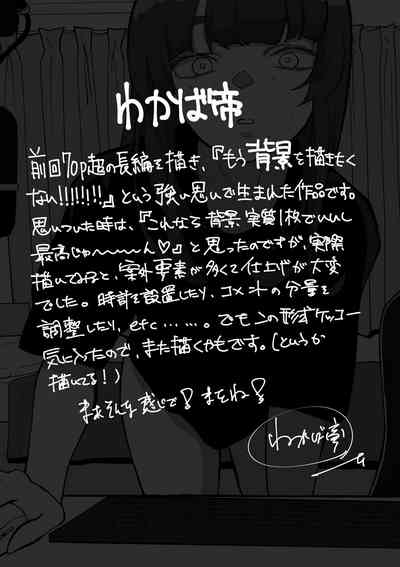 わかば帝
前回70p超の長編を描き、『もう背景を描きたく
ない!!!!!!!!』という強い思いで生まれた作品です。
思いついた時は、『これなら背景実質1枚でいいし
最高じゃ〜〜〜ん♡』と思ったのですが、実際
描いてみると、案外要素が多くて仕上げが大変
でした。時計を設置したり、コメントの分量を
調整したり、etc……。でもこの形式ケッコー
気に入ったので、また描くかもです。(というか
描いてる!)
まあそんな感じで! またね!